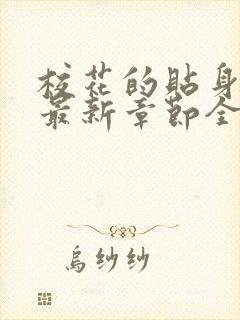 校花的貼身
最新章節全
烏紗紗